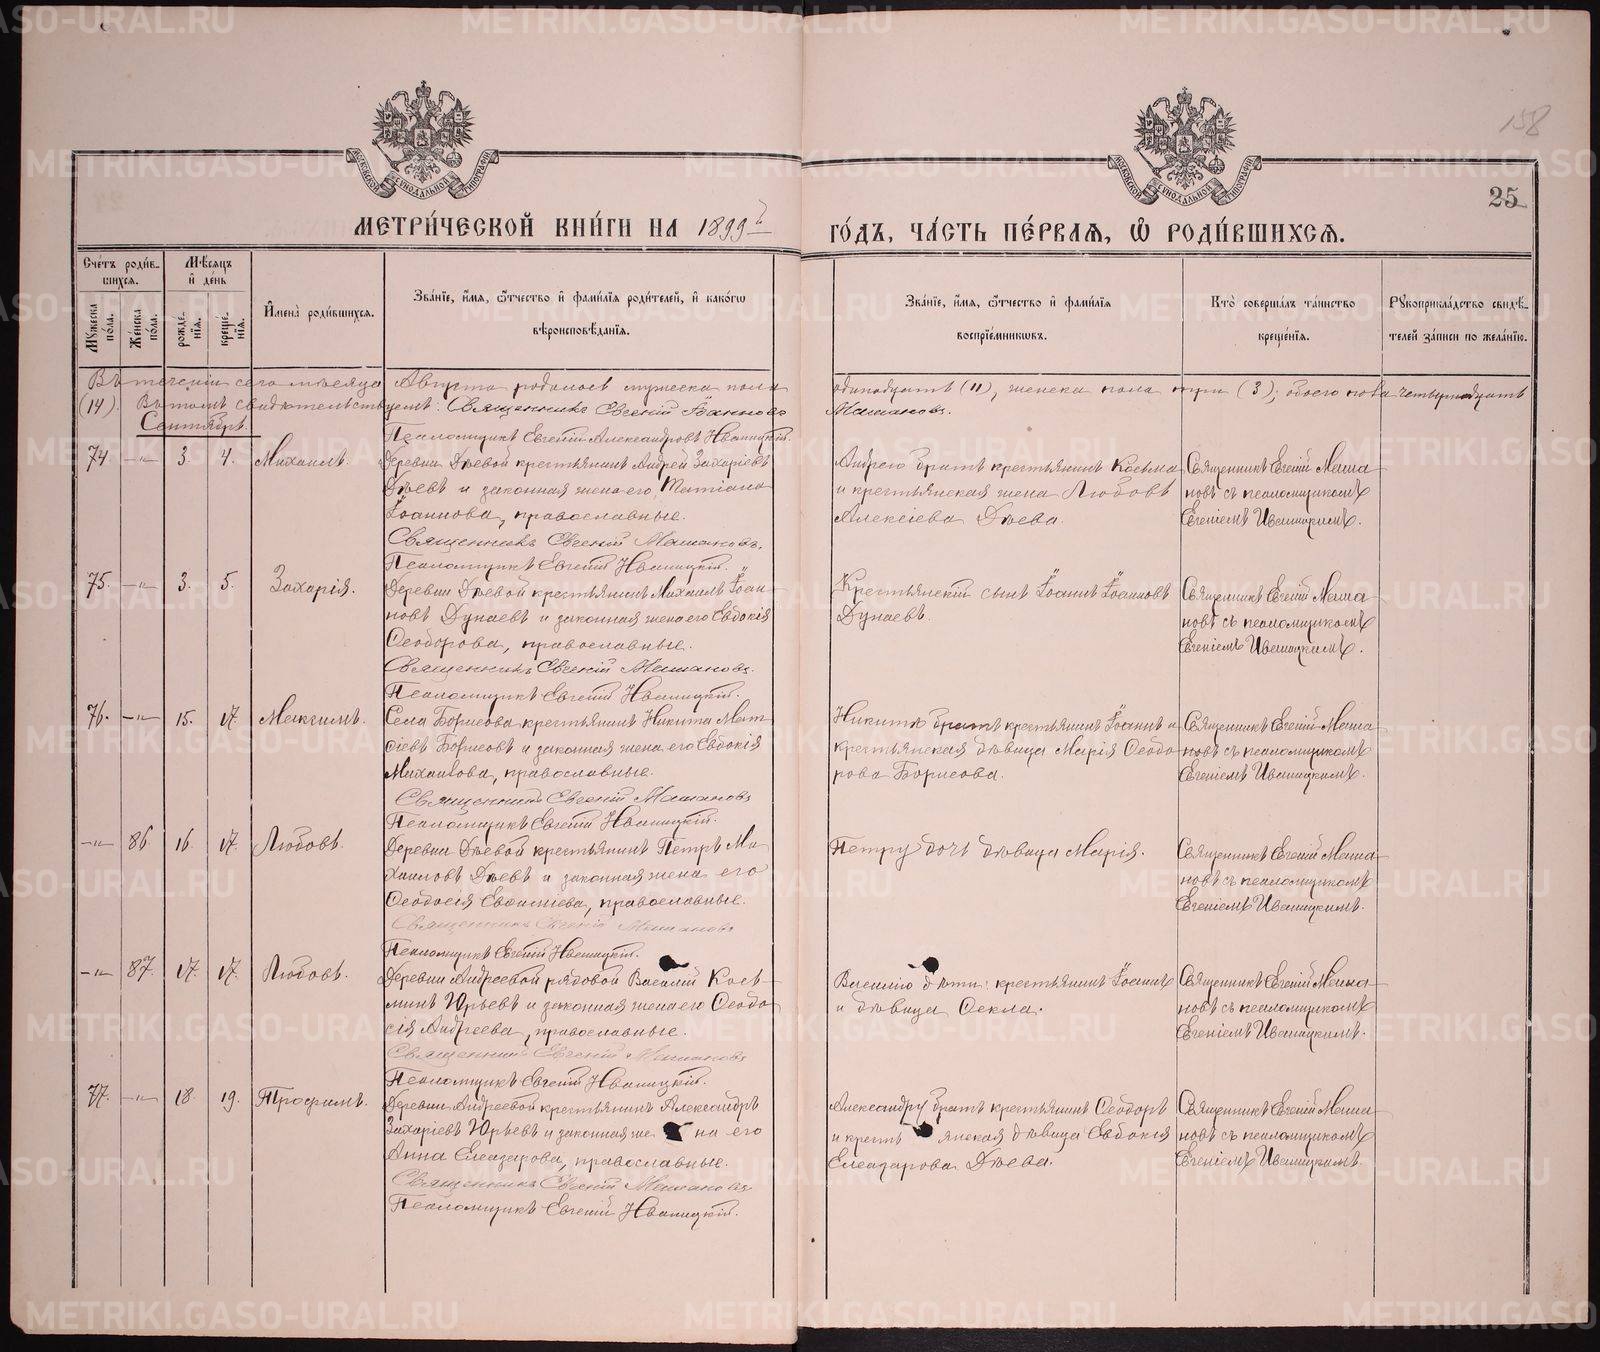 158
25
МОСКОВСКОЙ СѴНОДАЛЬНОЙ ТИПОГРАФІИ
МОСКОВСКОЙ СѴНОДАЛЬНОЙ ТИПОГРАФІИ
МЕТРИ́ЧЕСКОЙ КНИ́ГИ НА 1899
ГО́ДЪ, ЧА́СТЬ ПЕ́РВАЯ, Ѡ РОДИ́ВШИХСЯ.
Сче́тъ роди́в-
шихся.
Мꙋ́жеска
по́ла.
Же́нска
по́ла.
Мѣ́сяцъ
и҆ де́нь
рожде-
нїя.
креще́-
нїя.
И҆мена̀ роди́вшихся.
Зва́нїе, и҆́мя, ѻ҆́тчество и҆ фами́лїя роди́телей, и҆ како́гѡ
вѣроисповѣ́данїя.
Зва́нїе, и҆́мя, ѻ҆́тчество и҆ фами́лїя
воспрїе́мникѡвъ.
Кто̀ соверша́лъ та́инство
креще́нїя.
Рꙋкоприкла́дство свидѣ́-
телей за́писи по жела́нїю.
Въ теченіи сего мѣсяца Августа родилось мужеска пола одинадцать (11), женска пола три (3); обоего пола четырнадцать
(14). Въ томъ свидѣтельствуемъ: Священникъ Евгеній Іоанновъ Машановъ.
Псаломщикъ Евгеній Александровъ Иваницкій.
Сентябрь.
74. —"— 3. 4. Михаилъ.
Деревни Дѣевой крестьянинъ Андрей Захаріевъ
Дѣевъ и законная жена его, Татіана
Іоаннова, православные.
Священникъ Евгеній Машановъ.
Псаломщикъ Евгеній Иваницкій.
Андрею братъ крестьянинъ Косьма
и крестьянская жена Любовь
Алексіева Дѣева.
Священникъ Евгеній Маша-
новъ съ псаломщикомъ
Евгеніемъ Иваницкимъ.
75. —"— 3. 5. Захарія.
Деревни Дѣевой крестьянинъ Михаилъ Іоан-
новъ Дунаевъ и законная жена его Евдокія
Ѳеодорова, православные.
Священникъ Евгеній Машановъ.
Псаломщикъ Евгеній Иваницкій.
Крестьянскій сынъ Іоаннъ Іоанновъ
Дунаевъ.
Священникъ Евгеній Маша-
новъ съ псаломщикомъ
Евгеніемъ Иваницкимъ.
76. —"— 15. 17. Максимъ.
Села Борисова крестьянинъ Никита Мат-
ѳіевъ Борисовъ и законная жена его Евдокія
Михаилова, православные.
Священникъ Евгеній Машановъ
Псаломщикъ Евгеній Иваницкій.
Никитѣ братъ крестьянинъ Іоаннъ и
крестьянская дѣвица Марія Ѳеодо-
рова Борисова.
Священникъ Евгеній Маша-
новъ съ псаломщикомъ
Евгеніемъ Иваницкимъ.
—"— 86. 16. 17. Любовь.
Деревни Дѣевой крестьянинъ Петръ Ми-
хаиловъ Дѣевъ и законная жена его
Ѳеодосія Евѳиміева, православные.
Священникъ Евгеній Машановъ
Псаломщикъ Евгеній Иваницкій.
Петру дочь дѣвица Марія.
Священникъ Евгеній Маша-
новъ съ псаломщикомъ
Евгеніемъ Иваницкимъ.
—"— 87. 17. 17. Любовь.
Деревни Андреевой рядовой Василій Косъ-
минъ Юрьевъ и законная жена его Ѳеодо-
сія Андреева, православные.
Священникъ Евгеній Машановъ
Псаломщикъ Евгеній Иваницкій.
Василію дѣти: крестьянинъ Іоаннъ
и дѣвица Ѳекла.
Священникъ Евгеній Маша-
новъ съ псаломщикомъ
Евгеніемъ Иваницкимъ.
77. —"— 18. 19. Трофимъ.
Деревни Андреевой крестьянинъ Александръ
Захаріевъ Юрьевъ и законная жена его
Анна Елеазарова, православные.
Священникъ Евгеній Машановъ
Псаломщикъ Евгеній Иваницкій.
Александру братъ крестьянинъ Ѳеодоръ
и крестьянская дѣвица Евдокія
Елеазарова Дѣева.
Священникъ Евгеній Маша-
новъ съ псаломщикомъ
Евгеніемъ Иваницкимъ.
METRIKI.GASO-URAL.RU